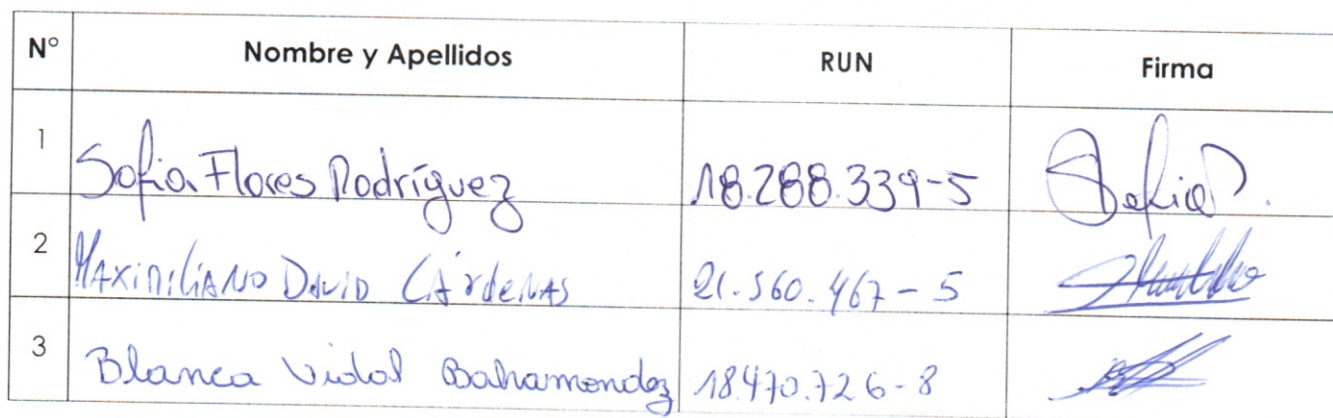 N° Nombre y Apellidos RUN Firma
1 Sofia Flores Rodríguez 18.288.339-5 Sofia
2 Maximiliano David Cárdenas 21.560.467-5
3 Blanca Vidal Bahamondez 18.470.726-8